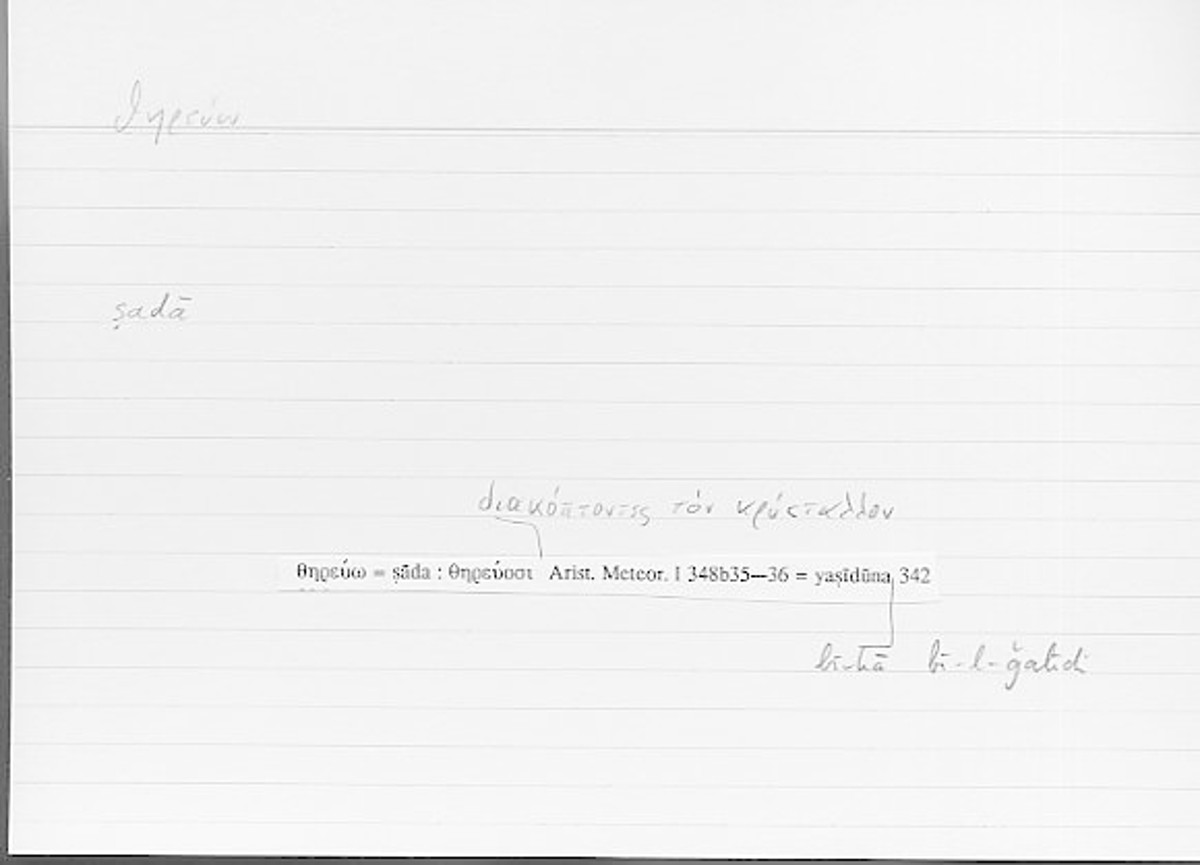 θηρεύω
ṣadā
διακόπτοντες τὸν κρύσταλλον
θηρεύω = ṣāda : θηρεύοσι Arist. Meteor. I 348b35—36 = yaṣīdūna 342
bi-hā bi-l-ǧalīdi